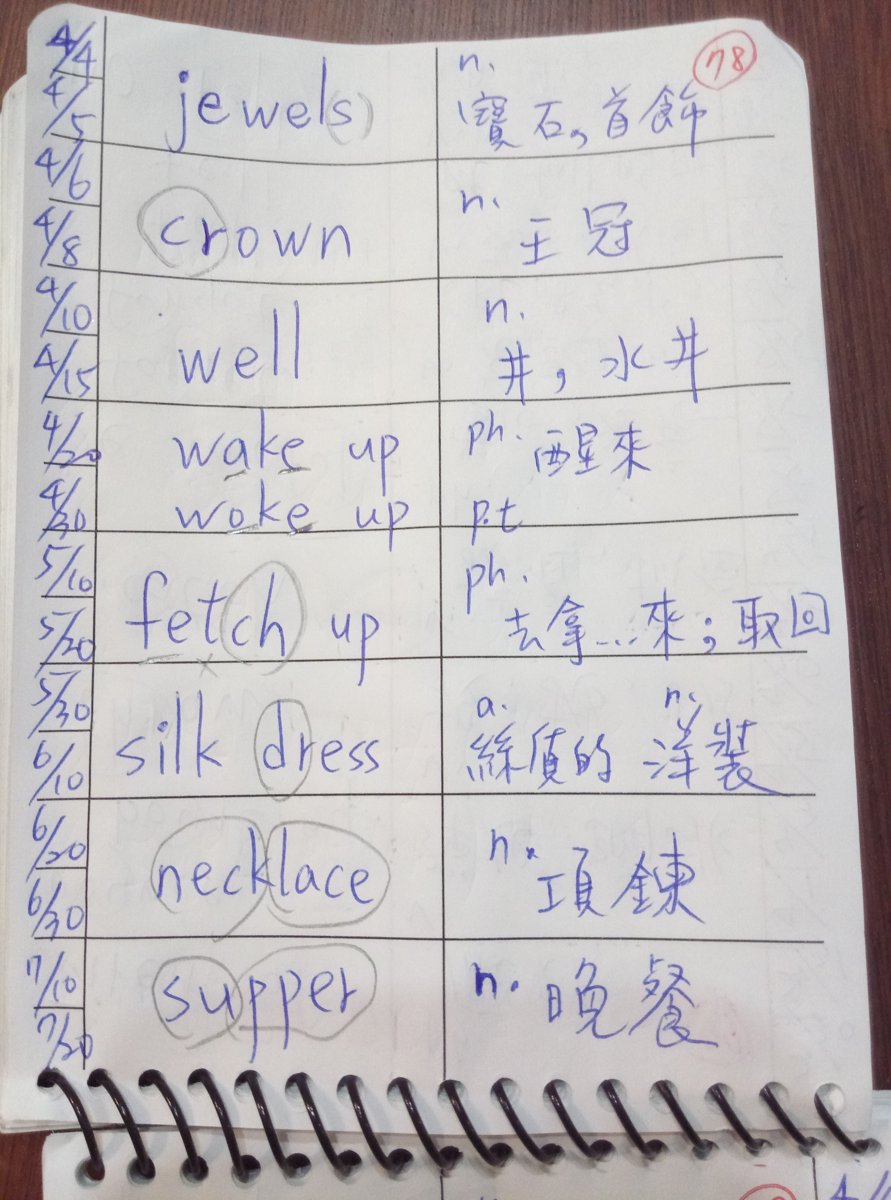 78
4/4
4/5
jewel(s)
n.
寶石,首飾
4/6
4/8
crown
n.
王冠
4/10
4/15
well
n.
井,水井
4/20
4/30
wake up
ph. 醒來
woke up
p.t
5/10
5/20
fetch up
ph.
去拿...來;取回
5/30
6/10
silk dress
a. n.
絲質的 洋裝
6/20
6/30
necklace
n.
項鍊
7/10
7/20
supper
n. 晚餐